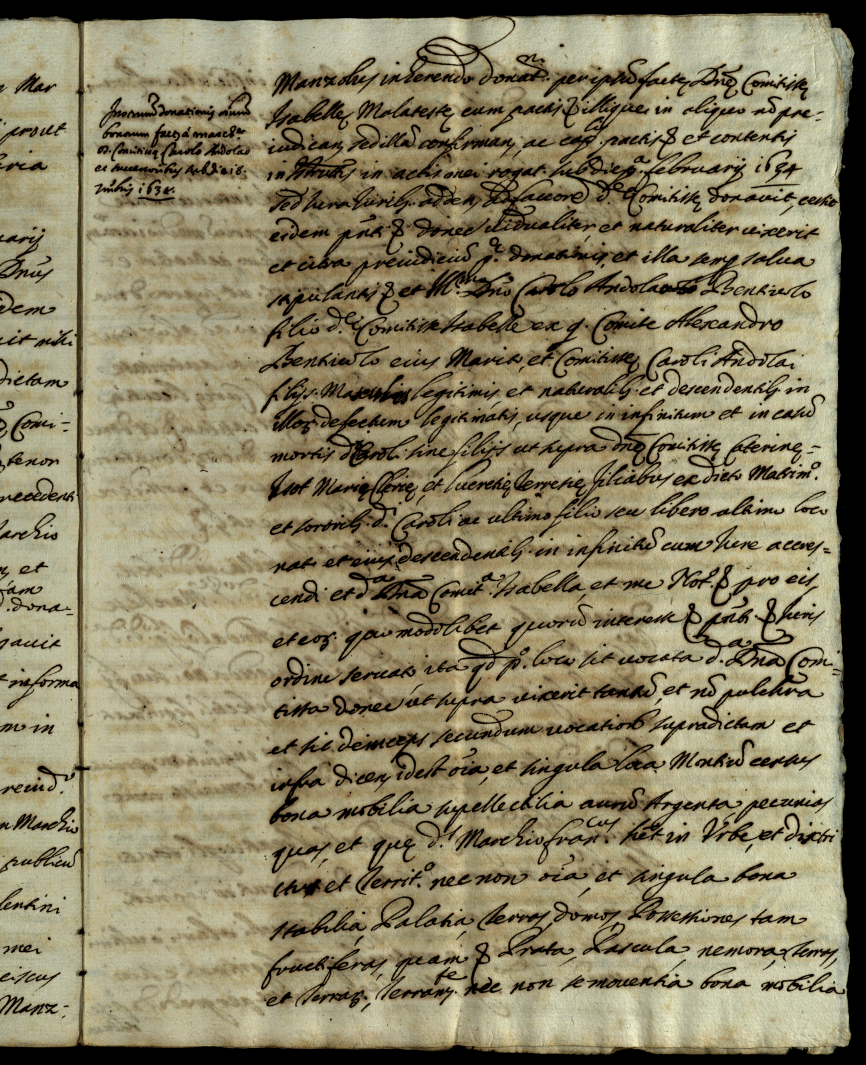 n Mar
prout
eria
uarij
Dnus
dem
uit nihi
dictam
Comi-
tenor
recedenti
archio
et
dona-
gauit
t reforma
m in
n Marchio
publicu
lentini
mei
ciscus
Manz-
Instrum donationis oium
bonorum factæ a March.
D. Comitissæ Carolo Andolao
et successoribus sub die 18
1634.
Manzolus inherendo donat. per ipsu factæ Dnæ Comitissæ
Isabellæ Malatestæ cum pactis illisque in aliquo no pre-
iudican, sed illa confirman, ac pactis et contentis
in in actis mei rogat. sub die pa. februarij 1634
sed iura iuribs. adden, favore d. Comitissæ donavit, cessit
eidem pnti donec uidualiter et naturaliter uixerit
et citra preiudiciu pe. donationis et illa semp salua
stipulantis et Dno Carolo Andolao Bentiuolo
filio de. Comitissæ Isabellæ ex q. Comite Alexandro
Bentiuolo eius Marito, et Comitis Caroli Andolai
filijs Masculis legitimis et naturalibs. et descendentibs. in
defectum legitimatis, usque in infinitum et in casu
mortis d. Caroli sine filijs ut supra dnæ Comitissæ Caterinæ-
Mariæ et Lucretiæ filiabus ex dicto Matrimo.
et sororibs. di. Caroli ac ultimo filio seu libero altimo loco
nat. et eius descendentibs. in infinitu cum iure accres-
cendi et da. Dna Comita. Isabella, et me Noto. pro eis,
et eor. quomodolibet quoru interest pnti iuris
ordine seruato ita qd po. loco sit uocata da. Dna Comi-
tissa donec ut supra uixerit tantu, et no pulchra
et sic deinceps secundum uocationes supradictam et
infra dicen, idest oia, et singula loca Montiu census
bona mobilia supellectilia auru Argenta pecunias
quas, et quæ ds. Marchio francus. het in Vrbe, et distri
ctu et territo. nec non oia, et singula bona
stabilia, Palatia, terras, domos, Possessiones tam
fructiferas, quam Prata, Pascula, nemora, terras,
et nec non semouentia bona mobilia